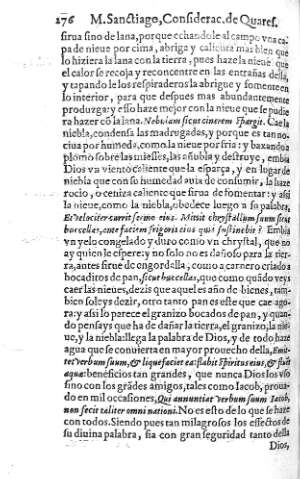 276 M. Sanctiago, Considerac. de Quares.
sirua sino de lana, porque echandole al campo vna ca
pa de nieue por cima, abriga y calienta mas bien que
lo hiziera la lana con la tierra, pues haze la nieue que
el calor se recoja y reconcentre en las entrañas della,
y tapando le los respiraderos la abrigue y fomente en
lo interior, para que despues mas abundantemente
produzga: y esso haze mejor con la nieue que se pudie
ra hazer cõ la lana. Nebulam sicut cinerem spargit. Cae la
niebla, condensa las madrugadas, y porque es tan no-
ciua por humeda, como la nieue por fria: y baxando a
plomo sobre las miesses, las añubla y destruye, embia
Dios vn viento caliente que la esparça, y en lugar de
niebla que con su humedad auia de consumir, la haze
rocio, o ceniza caliente que sirua de fomentar: y assi
la nieue, como la niebla, obedece luego a su palabra,
Et velociter currit sermo eius. Mittit chrystallum suum sicut
buccellas, ante faciem frigoris eius quis sustinebit? Embia
vn yelo congelado y duro como vn chrystal, que no
ay quien le espere: y no solo no es dañoso para la tier-
ra, antes sirue de engordella, como a carnero criado a
bocaditos de pan, sicut buccellas, que como quãdo veys
caer las nieues, dezis que aquel es año de bienes, tam-
bien soleys dezir, otro tanto pan es este que cae ago-
ra: y assi lo parece el granizo bocados de pan, y quan-
do pensays que ha de dañar la tierra, el granizo, la nie-
ue, y la niebla: llega la palabra de Dios, y de todo haze
agua que se conuierta en mayor prouecho della, Emit-
tet verbum suum, & liquefaciet ea: flabit Spiritus eius, & fluēt
aquæ: beneficios tan grandes, que nunca Dios los vso
sino con los grãdes amigos, tales como Iacob, proua-
do en mil occasiones, Qui annuntiat verbum suum Iacob,
non fecit taliter omni nationi. No es esto de lo que se haze
con todos. Siendo pues tan milagrosos los effectos de
su diuina palabra, sia con gran seguridad tanto della
Dios,